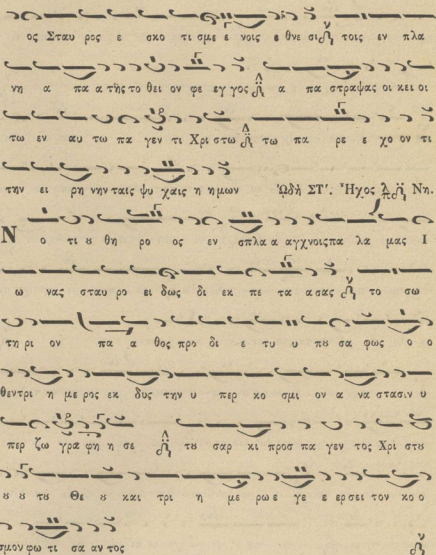 ος Σταυ ρος ε σκο τι σμε ε νοις ε θνε σι τοις εν πλα
νη α πα α της το θει ον φε εγ γος α πα στραψας οι κει οι
τω εν αυ τω πα γεν τι Χρι στω τω πα ρε ε χο ον τι
την ει ρη νην ταις ψυ χαις η η μων Ὠδὴ ΣΤ΄. Ἦχος λ π Νη.
Ν ο τι ȣ θη ρο ος εν σπλα α αγχνοις πα λα μας Ι
ω νας σταυ ρο ει δως δι εκ πε τα α σας το σω
τη ρι ον πα α θος προ δι ε τυ υ πȣ σα φως ο ο
θεν τρι η με ρος εκ δυς την υ περ κο σμι ον α να στασιν υ
περ ζω γρα φη η σε τȣ σαρ κι προσ πα γεν τος Χρι στȣ
ȣ ȣ τȣ Θε ȣ και τρι η με ρω ε γε ε ερσει τον κο ο
σμον φω τι σα αν τος